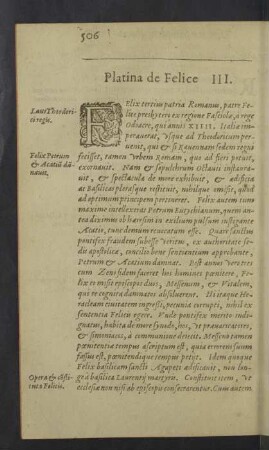 506
Platina de Felice III.
Laus Theoderici regis.
FElix tertius patria Romanus, patre Felice
presbytero ex regione Fasciolæ, à rege
Odoacre, qui annis XIIII. Italia imperauerat,
vsque ad Theodoricum peruenit,
qui & si Rauennam sedem regni
Felix Petrum & Acatiũ dãnauit.
fecisset, tamen vrbem Romam, quo ad fieri potuit,
exornauit. Nam & sepulchrum Octauii instaurauit,
& spectacula de more exhibuit, & ædificia
ac Basilicas plerasque restituit, nihilque omisit, quod
ad optimum principem pertineret. Felix autem cum
maxime intellexerat Petrum Eutychianum,
antea dezimo ob hæresim in exilium pulsum instigante
Acatio, tunc demum reuocatum esse. Quare sanctum
pontifex fraudem subesse veritus, ex authoritate sedis
apostolicæ, concilio bene sentientium approbante,
Petrum & Acatium damnat. Post annos vero tres
cum Zeno fidem faceret hos homines pœnitere, Felix
eo misit episcopos duos, Messenum, & Vitalem,
qui re cognita damnatos absoluerent. Hi itaque Heracleam
ciuitatem ingressi, pecunia corrupti, nihil ex
sententia Felicis egere. Vnde pontifex merito indignatus,
habita de more synodo, hos, vt præuaricatores,
& simoniacos, à communione deiecit. Messeno tamen
pœnitentiæ tempus ascriptum est, quia errorem suum
fassus est, pœnitendique tempus petiit. Idem quoque
Felix basilicam sancti Agapeti ædificauit, non longe
Opera & cõstituta Felicis.
à basilica Laurentij martyris. Constituit item, vt
ecclesiæ non nisi ab episcopis consecrarentur. Cum autem